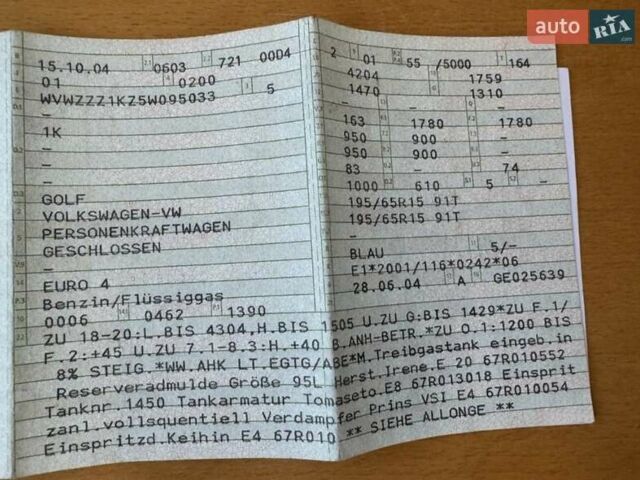 auto RIA .com
15.10.04 0603 721 00D4
01 0200
WVWZZZ1KZ5W095033 5
-
1K
-
-
-
GOLF
VOLKSWAGEN-VW
PERSONENKRAFTWAGEN
GESCHLOSSEN
-
EURO 4
Benzin/Flüssiggas
0006 0462 1390
2 01 55 /5000 164
4204 1759
1470 1310
- -
163 1780 1780
950 900 -
950 900 -
83 - 74
1000 610 5 -
195/65R15 91T
195/65R15 91T
-
BLAU 5/-
E1*2001/116*0242*06
28.06.04 A GE025639
ZU 18-20:L.BIS 4304,H.BIS 1505 U.ZU G:BIS 1429*ZU F.1/
F.2:+45 U.ZU 7.1-8.3:H.+40 B.ANH-BETR.*ZU O.1:1200 BIS
8% STEIG.*WW.AHK LT.EGTG/ABE*M.Treibgastank eingeb.in
Reserveradmulde Größe 95L Herst.Irene.E 20 67R010552
Tanknr.1450 Tankarmatur Tomaseto.E8 67R013018 Einsprit
zanl.vollsquentiell Verdampfer Prins VSI E4 67R010054
Einspritzd.Keihin E4 67R010 ** SIEHE ALLONGE **